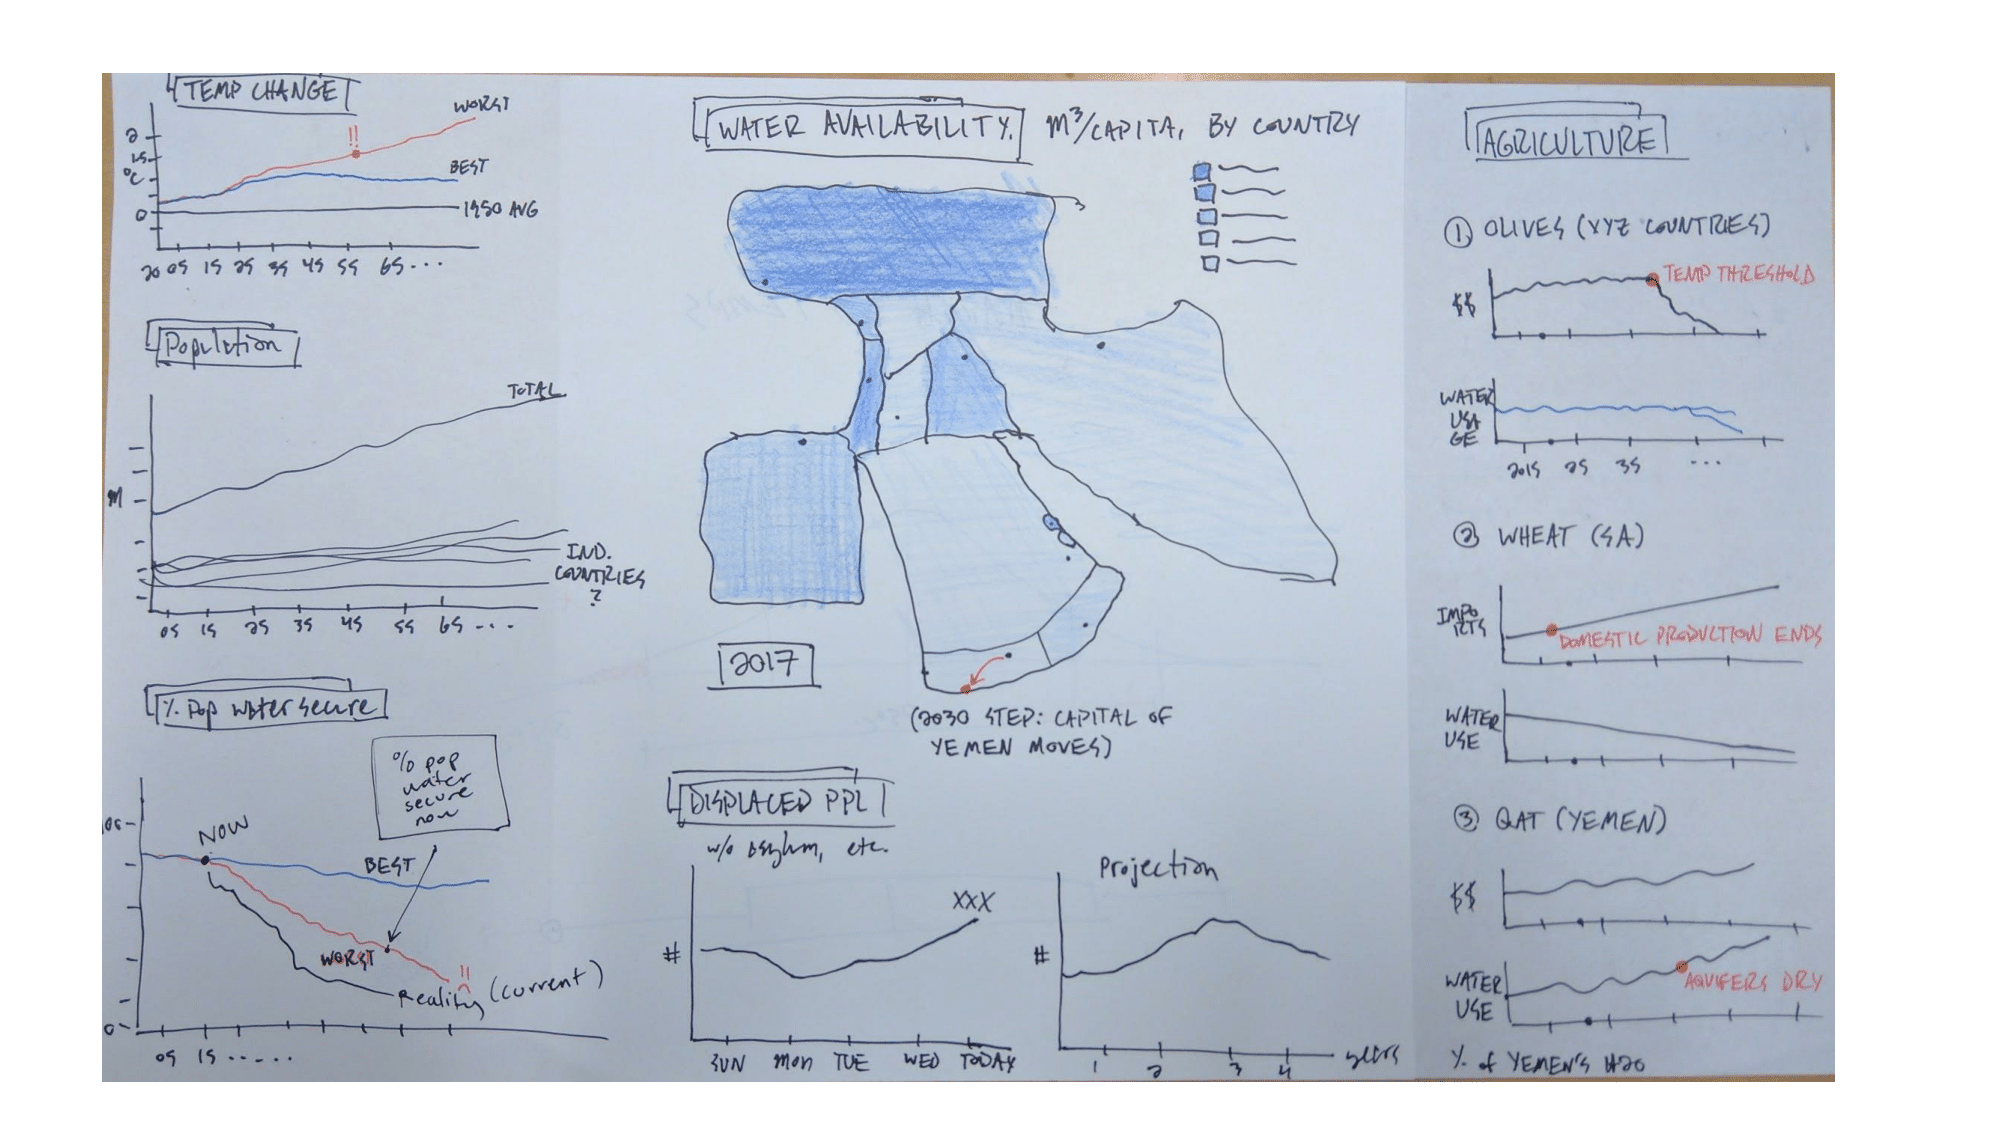 TEMP CHANGE
WORST
!!
2
1.5
°C
BEST
0
1950 AVG
20 05 15 25 35 45 55 65 ...
Population
TOTAL
M
IND.
COUNTRIES
?
05 15 25 35 45 55 65 ....
% Pop water secure
% pop
water
secure
now
NOW
BEST
WORST
!!
Reality (current)
0
05 15 ......
WATER AVAILABILITY. M³/CAPITA, BY COUNTRY
2017
(2030 STEP: CAPITAL OF
YEMEN MOVES)
DISPLACED PPL
w/o asylum, etc.
XXX
#
SUN MON TUE WED TODAY
Projection
#
1 2 3 4 years
AGRICULTURE
① OLIVES (XYZ COUNTRIES)
TEMP THRESHOLD
$$
WATER
USA
GE
2015 25 35 ...
② WHEAT (SA)
IMPO
RTS
DOMESTIC PRODUCTION ENDS
WATER
USE
③ QAT (YEMEN)
$$
WATER
USE
AQUIFERS DRY
% of YEMEN'S H2O